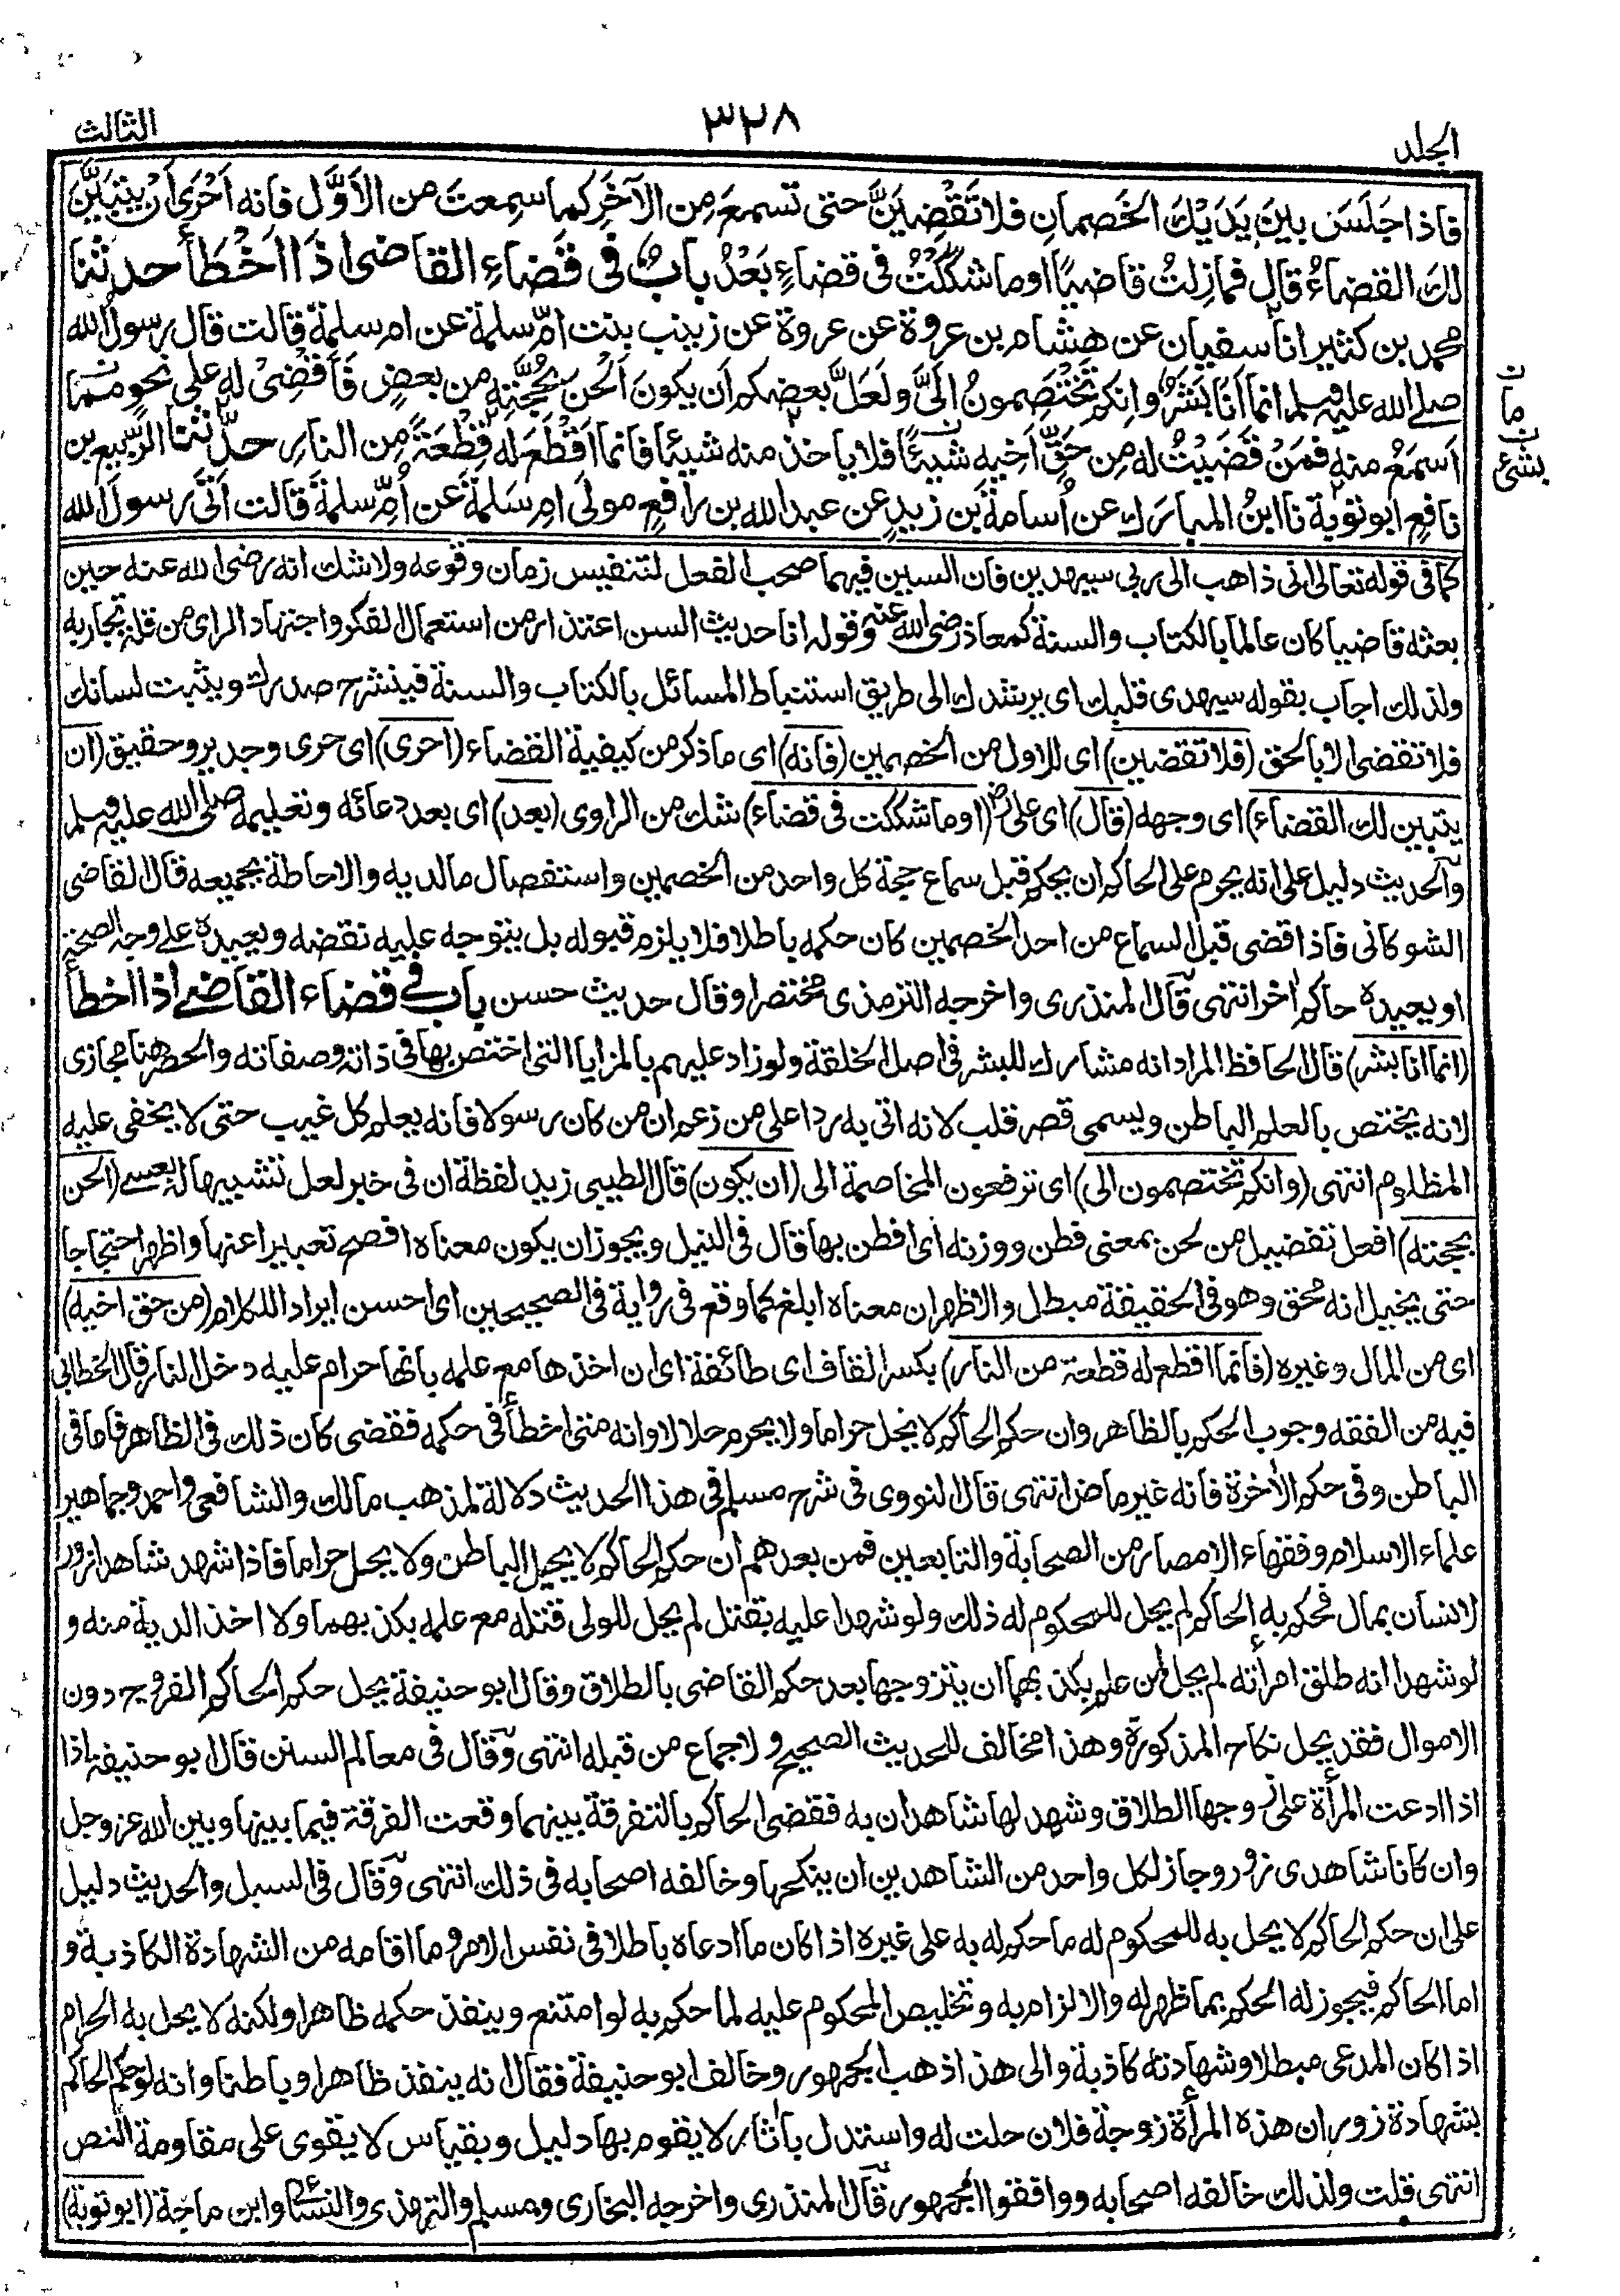 الجلد
٣٢٨
الثالث
فاذا جَلَسَ بينَ يَدَيْكَ الخَصمانِ فلا تَقْضِيَنَّ حتى تسمعَ مِن الآخَرِ كما سمعتَ من الأوّل فانه اَحْرَى اَنْ يتبيَّنَ
لك القضاءُ قال فمازِلتُ قاضيًا او ما شككتُ فى قضاءٍ بَعْدُ بابٌ فى قَضاءِ القاضى اذا اَخْطَأ حدثنا
محمد بن كثير انا سفيان عن هشام بن عروة عن عروة عن زينب بنت امّ سلمة عن ام سلمة قالت قال رسول الله
صلى الله عليه وسلم انما اَنَا بَشَرٌ وانكم تَخْتَصِمونُ اِلَىَّ ولَعَلَّ بعضكم اَن يكونَ اَلْحَنَ بحُجَّتِه من بعضٍ فَأَقْضِىْ له على نحوِ مما
اَسمَعُ منه فمَنْ قَضَيْتُ له مِن حَقِّ اَخيه شيئًا فلا ياخذ منه شيئا فانما اَقْطَعُ له قِطْعَةً مِن النارِ حدّثنا الربيع بن
نافعٍ ابو توبة نا ابنُ المبارك عن اُسامةَ بن زيدٍ عن عبد الله بن رافعٍ مولىَ امِ سَلَمَةَ عن اُمِّ سلمةَ قالت اَتَى رسولَ الله
ن مان
ن بشئ
كما فى قوله تعالى انى ذاهب الى ربى سيهدين فان السين فيهما صحب الفعل لتنفيس زمان وقوعه ولا شك انه رضى الله عنه حين
بعثه قاضيا كان عالما بالكتاب والسنة كمعاذ رضى الله عنه وقوله انا حديث السن اعتذار من استعمال الفكر واجتهاد الراى من قلة تجاربه
ولذلك اجاب بقوله سيهدى قلبك اى يرشدك الى طريق استنباط المسائل بالكتاب والسنة فينشرح صدرك ويثبت لسانك
فلا تقضى الا بالحق (فلا تقضين) اى للاول من الخصمين (فانه) اى ما ذكر من كيفية القضاء (احرى) اى حرى وجدير وحقيق (ان
يتبين لك القضاء) اى وجهه (قال) اى على رض (او ما شككت فى قضاء) شك من الراوى (بعد) اى بعد دعائه وتعليمه صلى الله عليه وسلم
والحديث دليل على انه يحرم على الحاكم ان يحكم قبل سماع حجة كل واحد من الخصمين واستفصال ما لديه والاحاطة بجميعه قال القاضى
الشوكانى فاذا قضى قبل السماع من احد الخصمين كان حكمه باطلا فلا يلزم قبوله بل يتوجه عليه نقضه ويعيده على وجه الصحة
او يعيده حاكم اخر انتهى قال المنذرى واخرجه الترمذى مختصرا وقال حديث حسن باب فى قضاء القاضى اذا اخطأ
(انما انا بشر) قال الحافظ المراد انه مشارك للبشر فى اصل الخلقة ولو زاد عليهم بالمزايا التى اختص بها فى ذاته وصفاته والحصر هنا مجازى
لانه يختص بالعلم الباطن ويسمى قصر قلب لانه اتى به ردا على من زعم ان من كان رسولا فانه يعلم كل غيب حتى لا يخفى عليه
المظلوم انتهى (وانكم تختصمون الى) اى ترفعون المخاصمة الى (ان يكون) قال الطيبى زيد لفظة ان فى خبر لعل تشبيها له بعسى (الحن
بحجته) افعل تفضيل من لحن بمعنى فطن ووزنه اى افطن بها قال فى النيل ويجوز ان يكون معناه افصح تعبيرا عنها واظهر احتجاجا
حتى يخيل انه محق وهو فى الحقيقة مبطل والاظهر ان معناه ابلغ كما وقع فى رواية فى الصحيحين اى احسن ايرادا للكلام (من حق اخيه)
اى من المال وغيره (فانما اقطع له قطعة من النار) بكسر القاف اى طائفة اى ان اخذها مع علمه بانها حرام عليه دخل النار قال الخطابى
فيه من الفقه وجوب الحكم بالظاهر وان حكم الحاكم لا يحل حراما ولا يحرم حلالا وانه متى اخطأ فى حكمه فقضى كان ذلك فى الظاهر فاما فى
الباطن وفى حكم الاخرة فانه غير ماض انتهى قال النووى فى شرح مسلم فى هذا الحديث دلالة لمذهب مالك والشافعى واحمد وجماهير
علماء الاسلام وفقهاء الامصار من الصحابة والتابعين فمن بعدهم ان حكم الحاكم لا يحيل الباطن ولا يحل حراما فاذا شهد شاهدا زور
لانسان بمال فحكم به الحاكم لم يحل للمحكوم له ذلك ولو شهدا عليه بقتل لم يحل للولى قتله مع علمه بكذبهما ولا اخذ الدية منه و
لو شهدا انه طلق امرأته لم يحل لمن علم بكذبهما ان يتزوجها بعد حكم القاضى بالطلاق وقال ابو حنيفة يحل حكم الحاكم الفروج دون
الاموال فقد يحل نكاح المذكورة وهذا مخالف للحديث الصحيح ولاجماع من قبله انتهى وقال فى معالم السنن قال ابو حنيفة اذا
اذا ادعت المرأة على زوجها الطلاق وشهد لها شاهدان به فقضى الحاكم بالتفرقة بينهما وقعت الفرقة فيما بينها وبين الله عز وجل
وان كانا شاهدى زور وجاز لكل واحد من الشاهدين ان ينكحها وخالفه اصحابه فى ذلك انتهى وقال فى السبل والحديث دليل
على ان حكم الحاكم لا يحل به للمحكوم له ما حكم له به على غيره اذا كان ما ادعاه باطلا فى نفس الامر وما اقامه من الشهادة الكاذبة و
اما الحاكم فيجوز له الحكم بما ظهر له والالزام به وتخليص المحكوم عليه لما حكم به لو امتنع وينفذ حكمه ظاهرا ولكنه لا يحل به الحرام
اذا كان المدعى مبطلا وشهادته كاذبة والى هذا ذهب الجمهور وخالف ابو حنيفة فقال انه ينفذ ظاهرا وباطنا وانه لو حكم الحاكم
بشهادة زور ان هذه المرأة زوجة فلان حلت له واستدل بآثار لا يقوم بها دليل وبقياس لا يقوى على مقاومة النص
انتهى قلت ولذلك خالفه اصحابه ووافقوا الجمهور قال المنذرى واخرجه البخارى ومسلم والترمذى والنسائى وابن ماجة (ابو توبة)